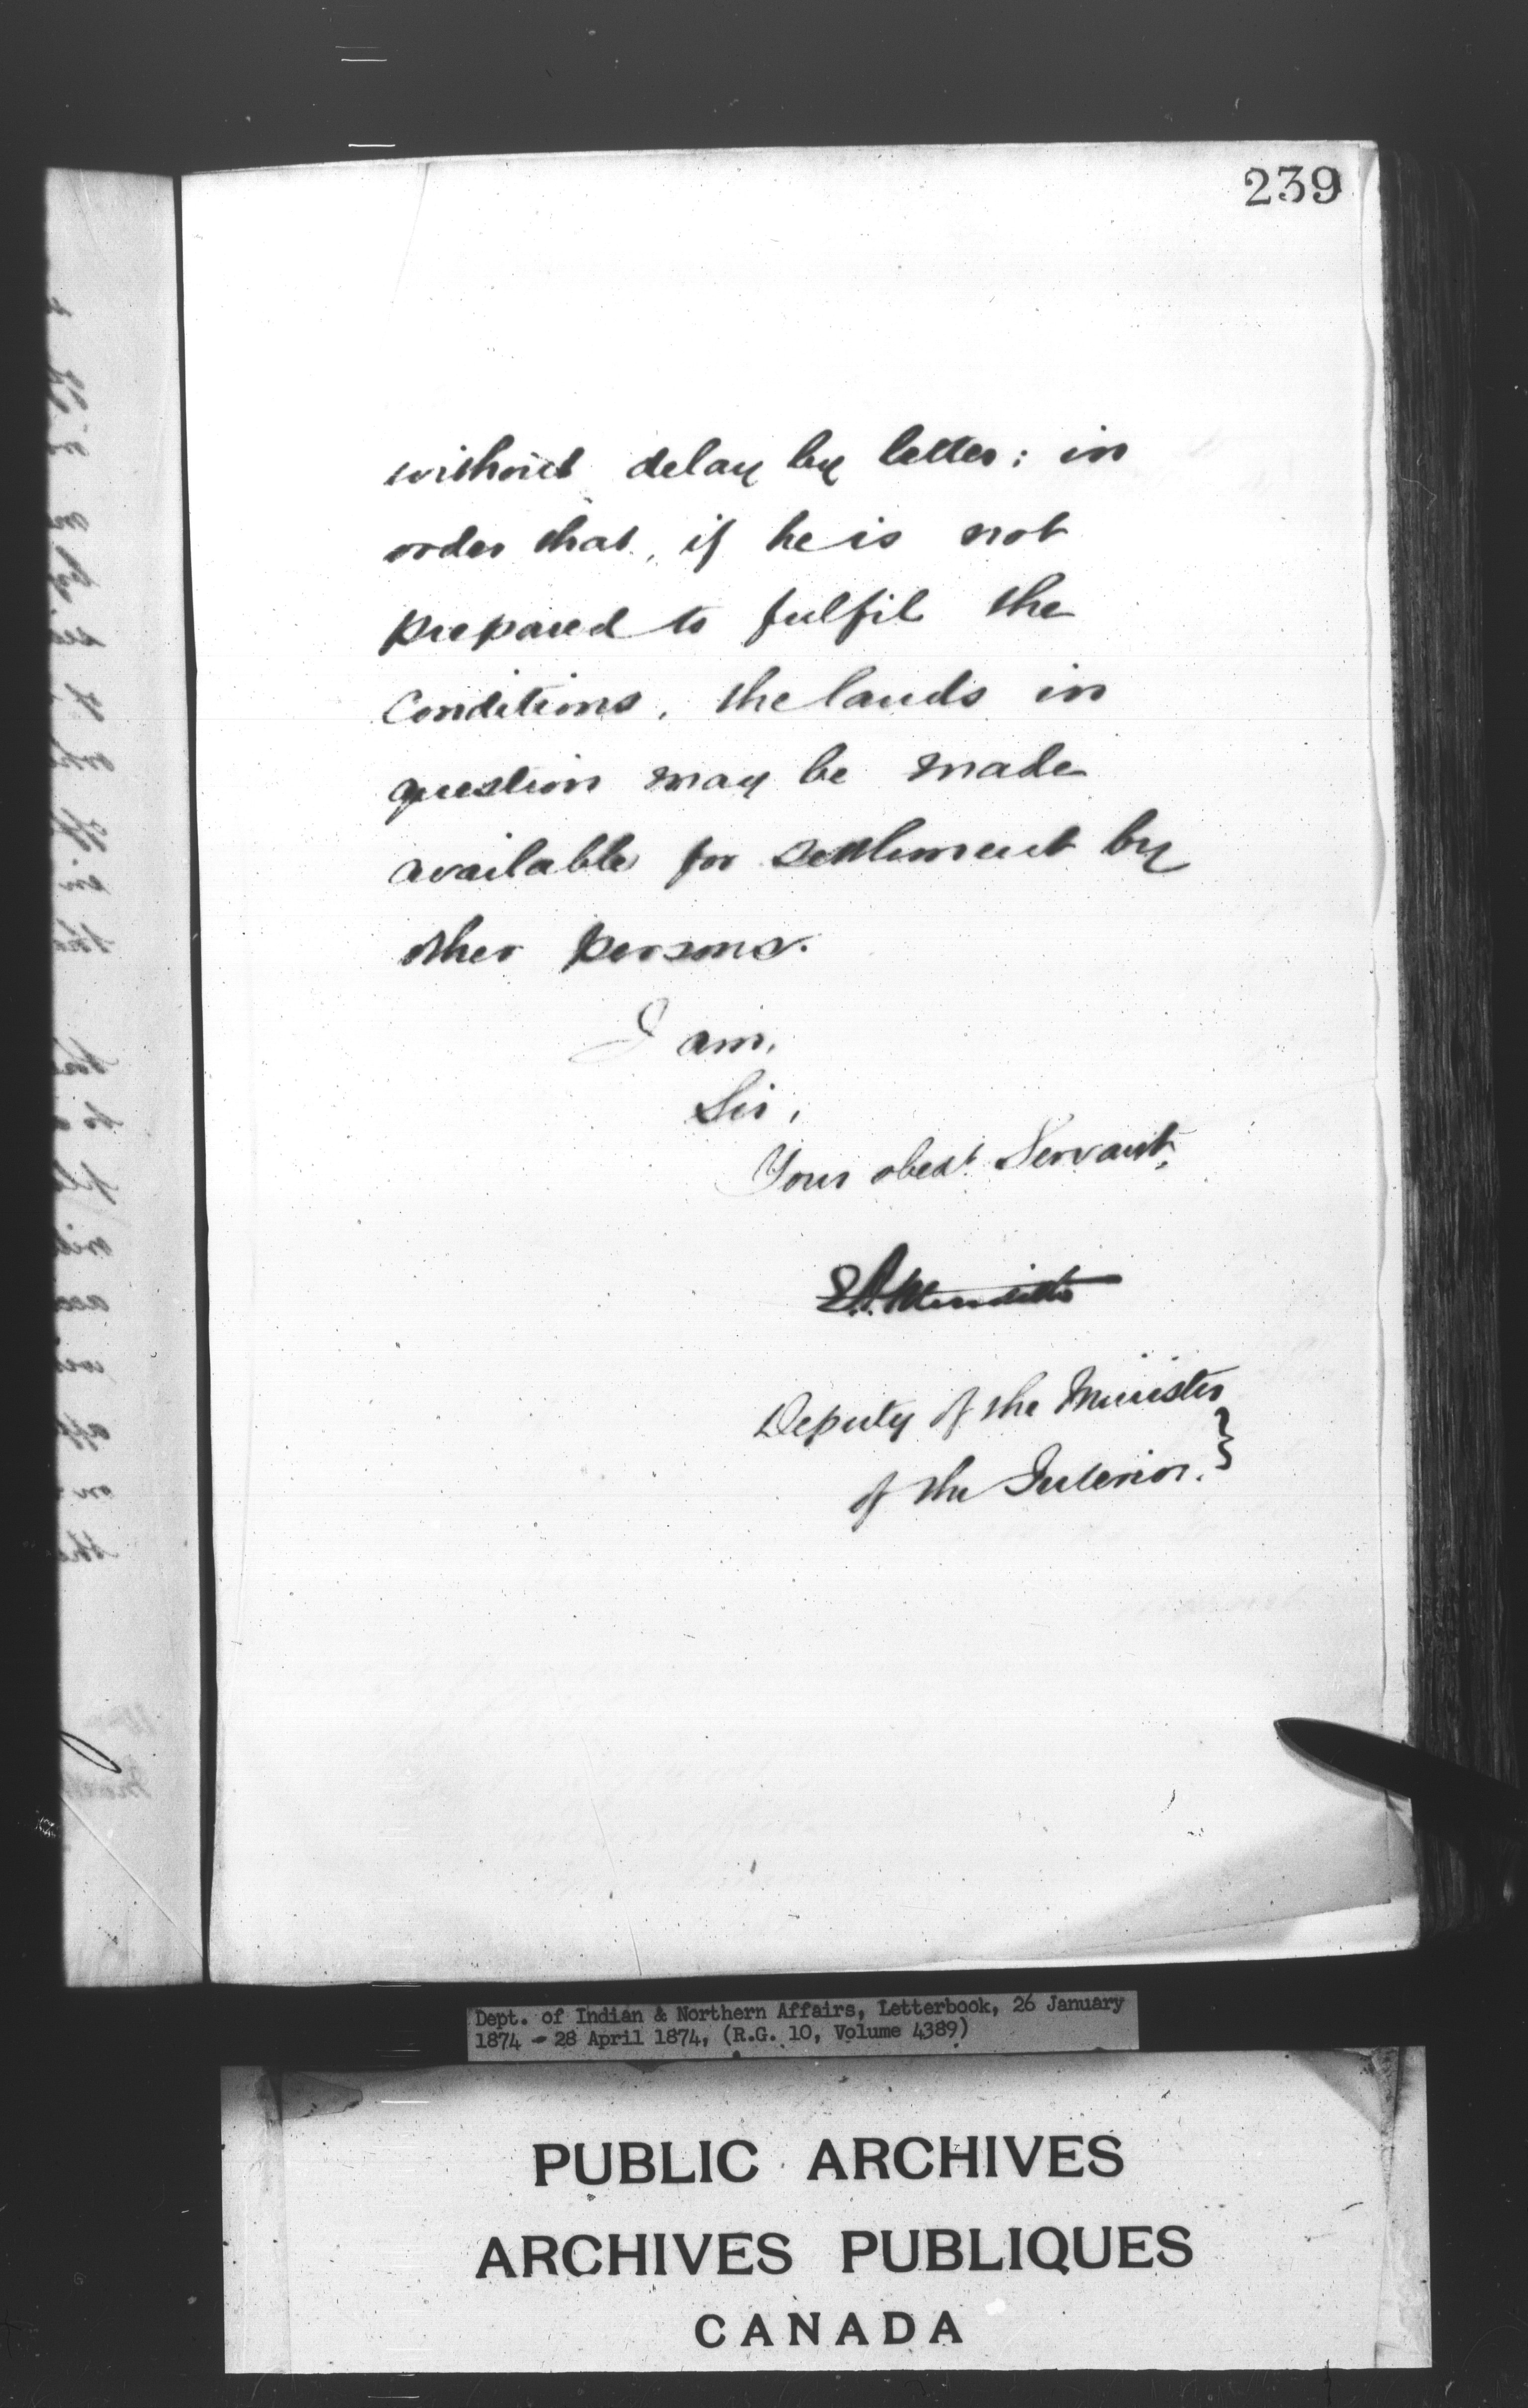 239
without delay by letter; in
order that, if he is not
prepared to fulfil the
Conditions, the lands in
question may be made
available for settlement by
other persons.
I am,
Sir,
Your obedt Servant,
E.A. Meredith
Deputy of the Minister
of the Interior.
Dept. of Indian & Northern Affairs, Letterbook, 26 January
1874 - 28 April 1874, (R.G. 10, Volume 4389)
PUBLIC ARCHIVES
ARCHIVES PUBLIQUES
CANADA